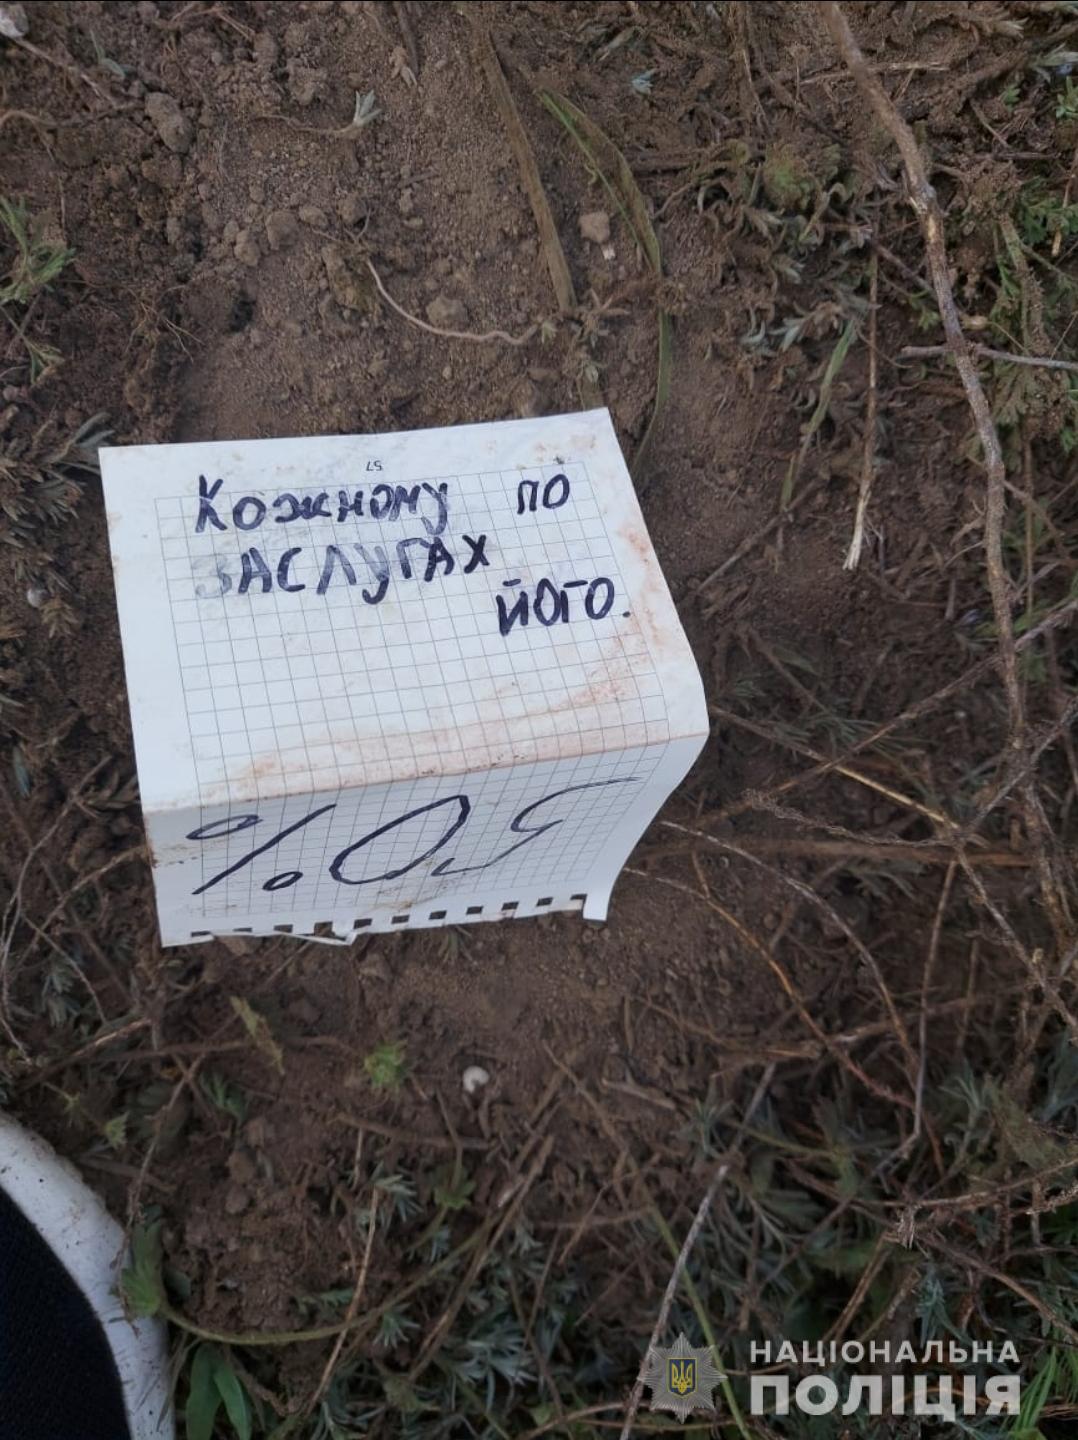 57
Кожному по
ЗАСЛУГАХ
його.
50%
НАЦІОНАЛЬНА
ПОЛІЦІЯ